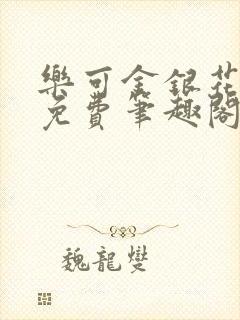 樂可金銀花
免費筆趣閣
魏龍燮